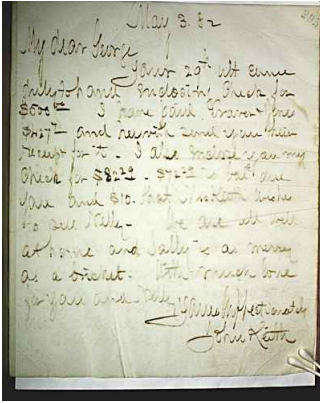 May 3. 82
My dear George
Your 29th ult came
duly to hand inclosing check for
$500 I have paid
and herewith send you
receipt for it. I also inclose you my
check for $82.29. $72.29 is bal. due
you and $10. that wishes
to our Nelly. We are all well
at home and Sally is as merry
as a cricket. With much love
for you and Nelly
Yours Affectionately
John Keith